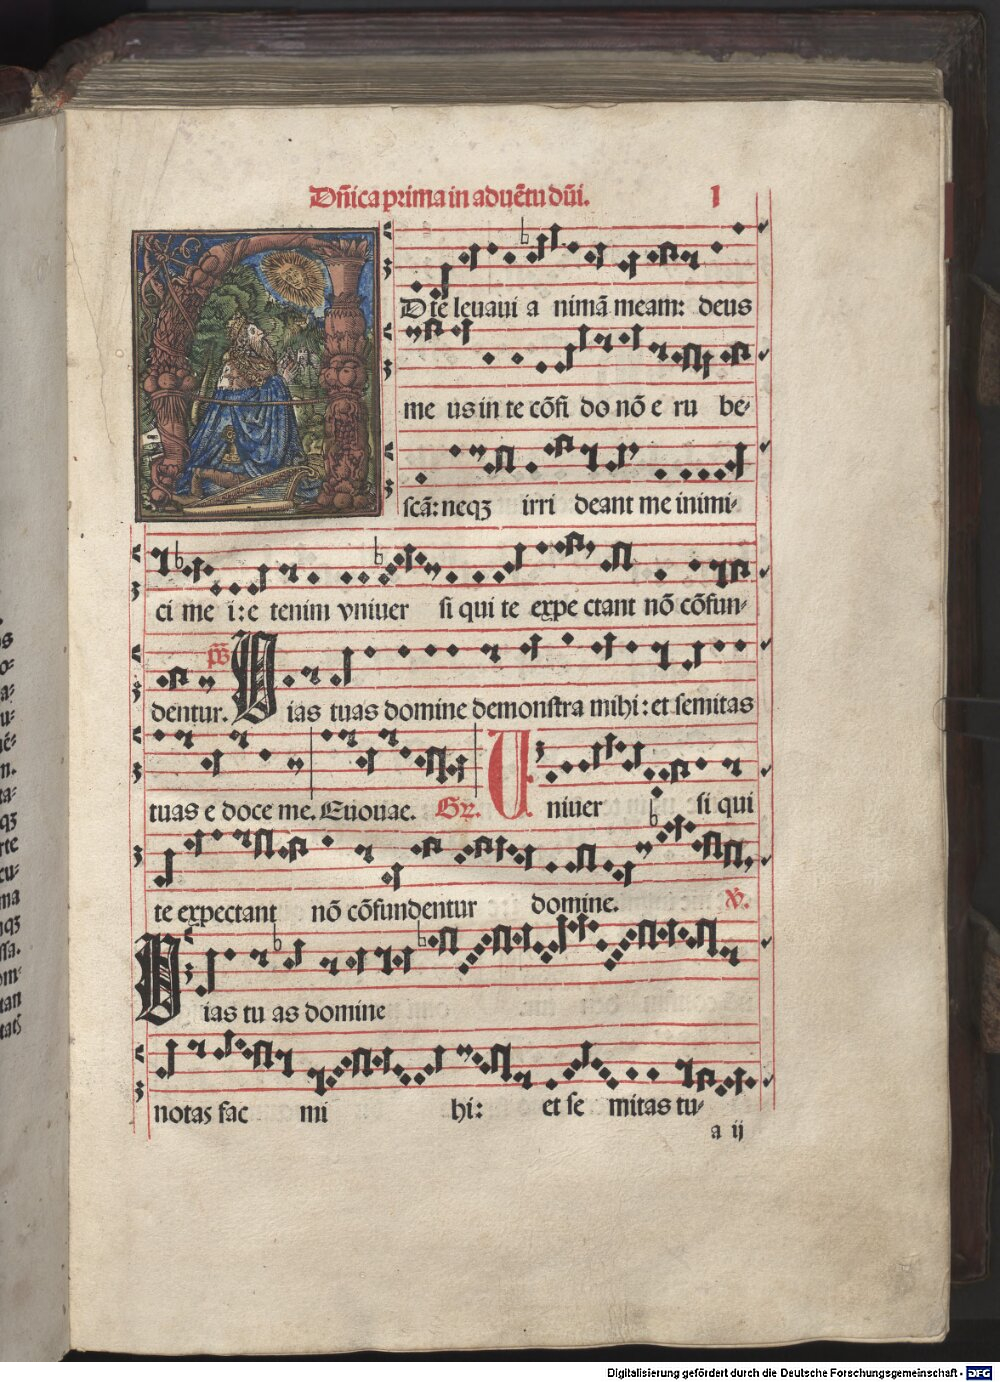 Dñica prima in aduẽtu dñi. 1
AD te leuaui a nimã meam: deus
me us in te cõfi do nõ e ru be-
scã: neqȝ irri deant me inimi-
ci me i: e tenim vniuer si qui te expe ctant nõ cõfun-
dentur. p̃s Vias tuas domine demonstra mihi: et semitas
tuas e doce me. Euouae. Gr. Uniuer si qui
te expectant nõ cõfundentur domine. V.
Vias tu as domine
notas fac mi hi: et se mitas tu-
a ij
Digitalisierung gefördert durch die Deutsche Forschungsgemeinschaft - DFG